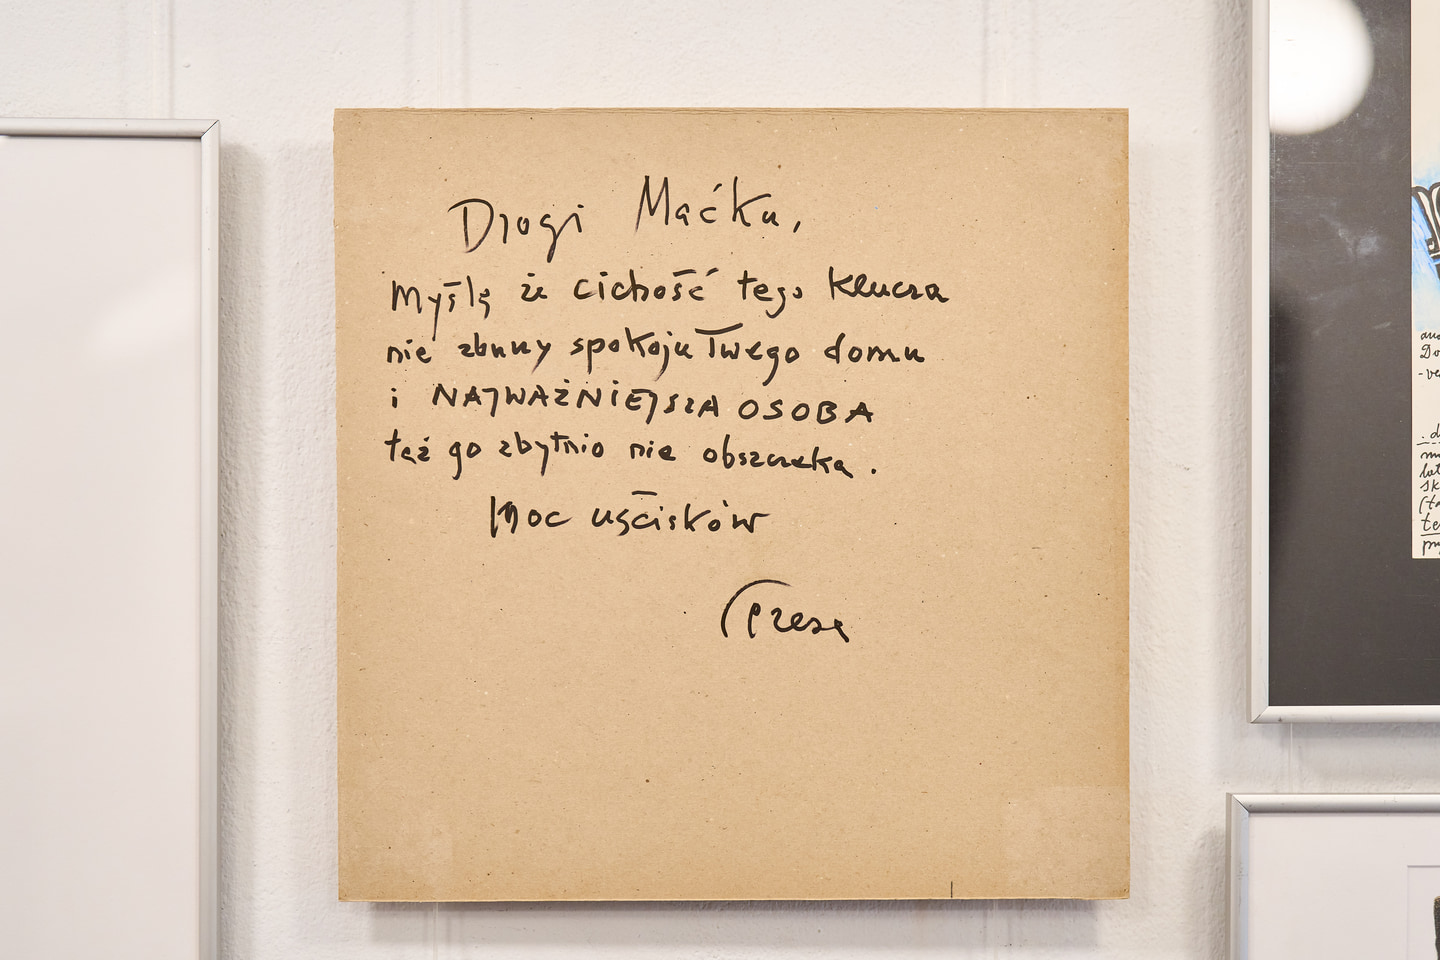 Drogi Maćku,
Myślę że cichość tego klucza
nie zburzy spokoju Twego domu
i NAJWAŻNIEJSZA OSOBA
też go zbytnio nie obszczeka.
Moc uścisków